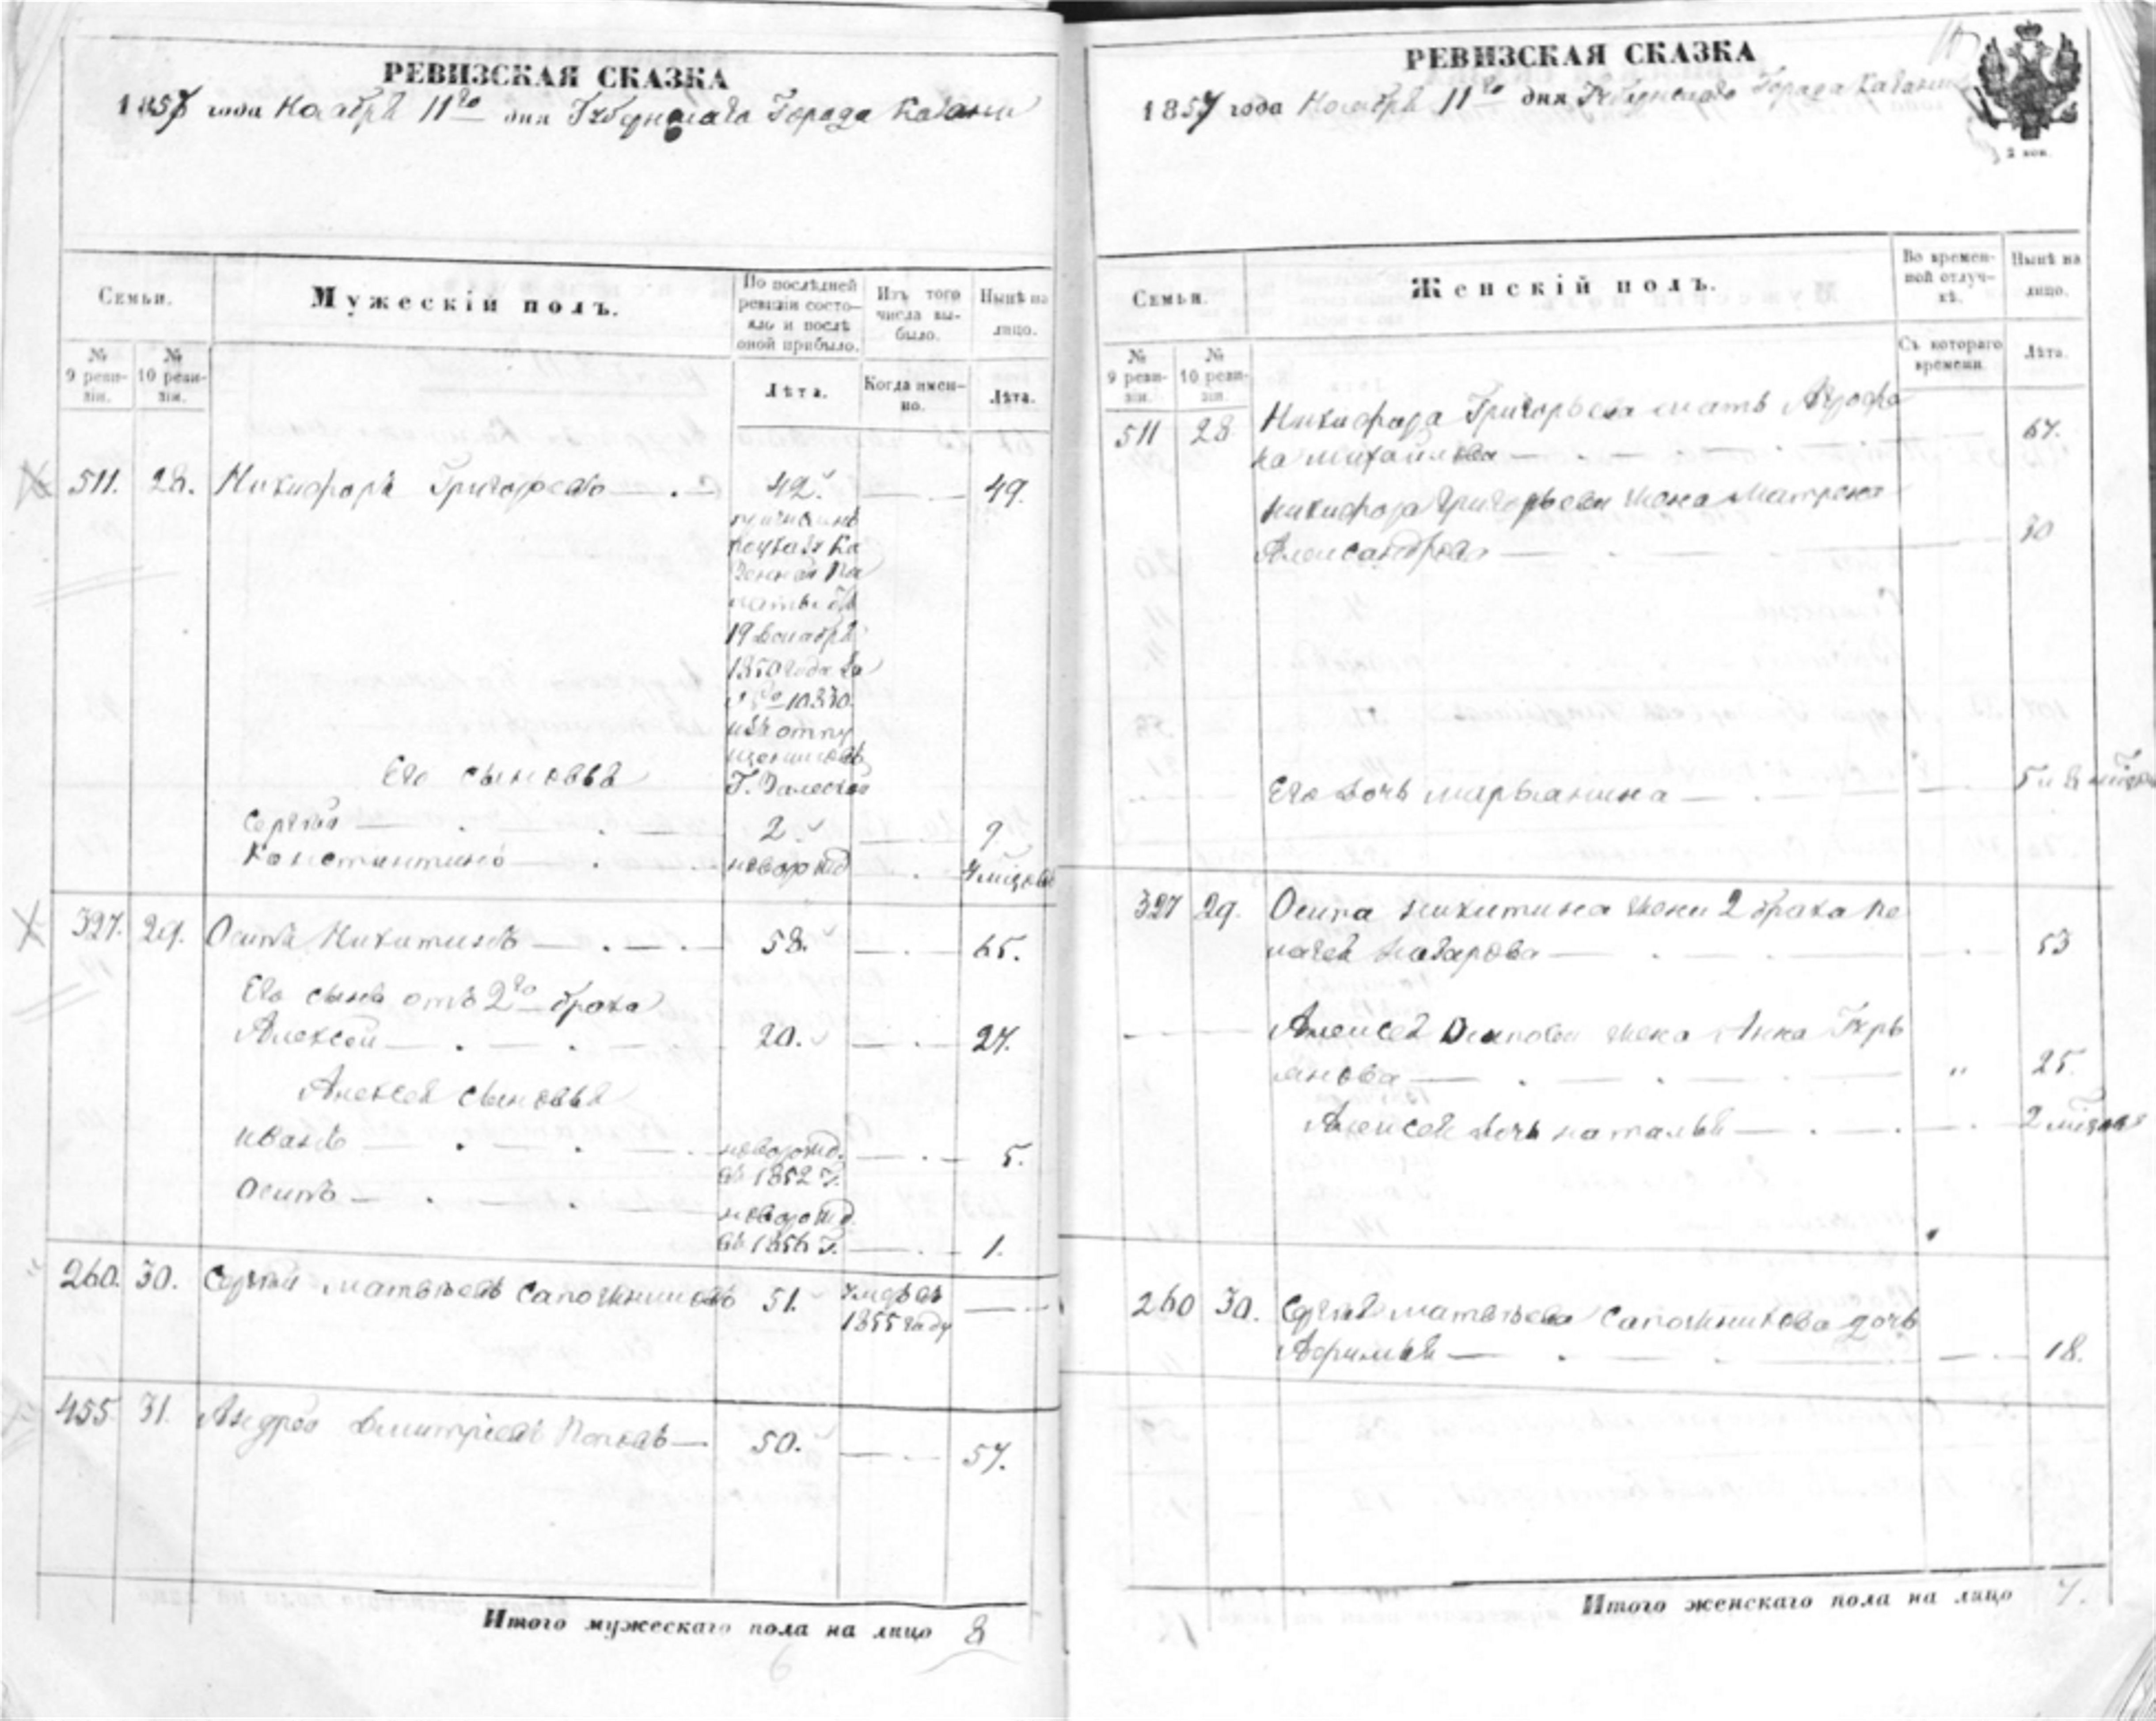 РЕВИЗСКАЯ СКАЗКА
1857 года Ноября 11го дня Губернскаго Города Казани
Семьи.
Мужескій полъ.
По послѣдней ревизіи состояло и послѣ оной прибыло.
Изъ того числа выбыло.
Нынѣ на лицо.
№ 9 ревизіи.
№ 10 ревизіи.
Лѣта.
Когда именно.
Лѣта.
511. 28. Никифоръ Григорьевъ 42. 49.
причисленъ
по указу Ка
зенной Па
латы отъ
19 Декабря
1850 года за
№ 10330
изъ отпу
щенниковъ
Его сыновья
Г.
Сергѣй 2. 9.
Константинъ новорожд 7 мѣсяцовъ
327. 29. Осипъ Никитинъ 58. 65.
Его сынъ отъ 2го брака
Алексей 20. 27.
Алексея сыновья
Иванъ новорожд. 5.
въ 1852 г.
Осипъ новорожд.
въ 1856 г. 1.
260. 30. Сергѣй Матвѣевъ Сапожниковъ 51. Умеръ въ
1855 году
455 31. Андрей Дмитріевъ Поповъ 50. 57.
Итого мужескаго пола на лицо 8
6
РЕВИЗСКАЯ СКАЗКА
1857 года Ноября 11го дня Губернскаго Города Казани
Семьи.
Женскій полъ.
Во временной отлучкѣ.
Нынѣ на лицо.
№ 9 ревизіи.
№ 10 ревизіи.
Съ котораго времени.
Лѣта.
511 28 Никифора Григорьева мать Агрофе
на Михайлова 67.
Никифора Григорьева жена Матрена
Александрова 30
Его дочь Марьянина 5 и 8 мѣсяц
327 29. Осипа Никитина жена 2 брака Пе
лагея Назарова 53
Алексея Осипова жена Анна Гурь
янова " 25.
Алексея дочь Наталья 2 мѣсяца
260 30. Сергѣя Матвѣева Сапожникова дочь
Афимья 18.
Итого женскаго пола на лицо 7.